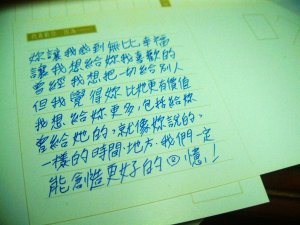 妳讓我感到無比幸福
讓我想給妳我喜歡的
曾經我想把一切給別人
但我覺得妳比她更有價值
我想給妳更多,包括給妳
要給她的,就像妳說的,
一樣的時間.地方.我們一定
能創造更好的回憶!